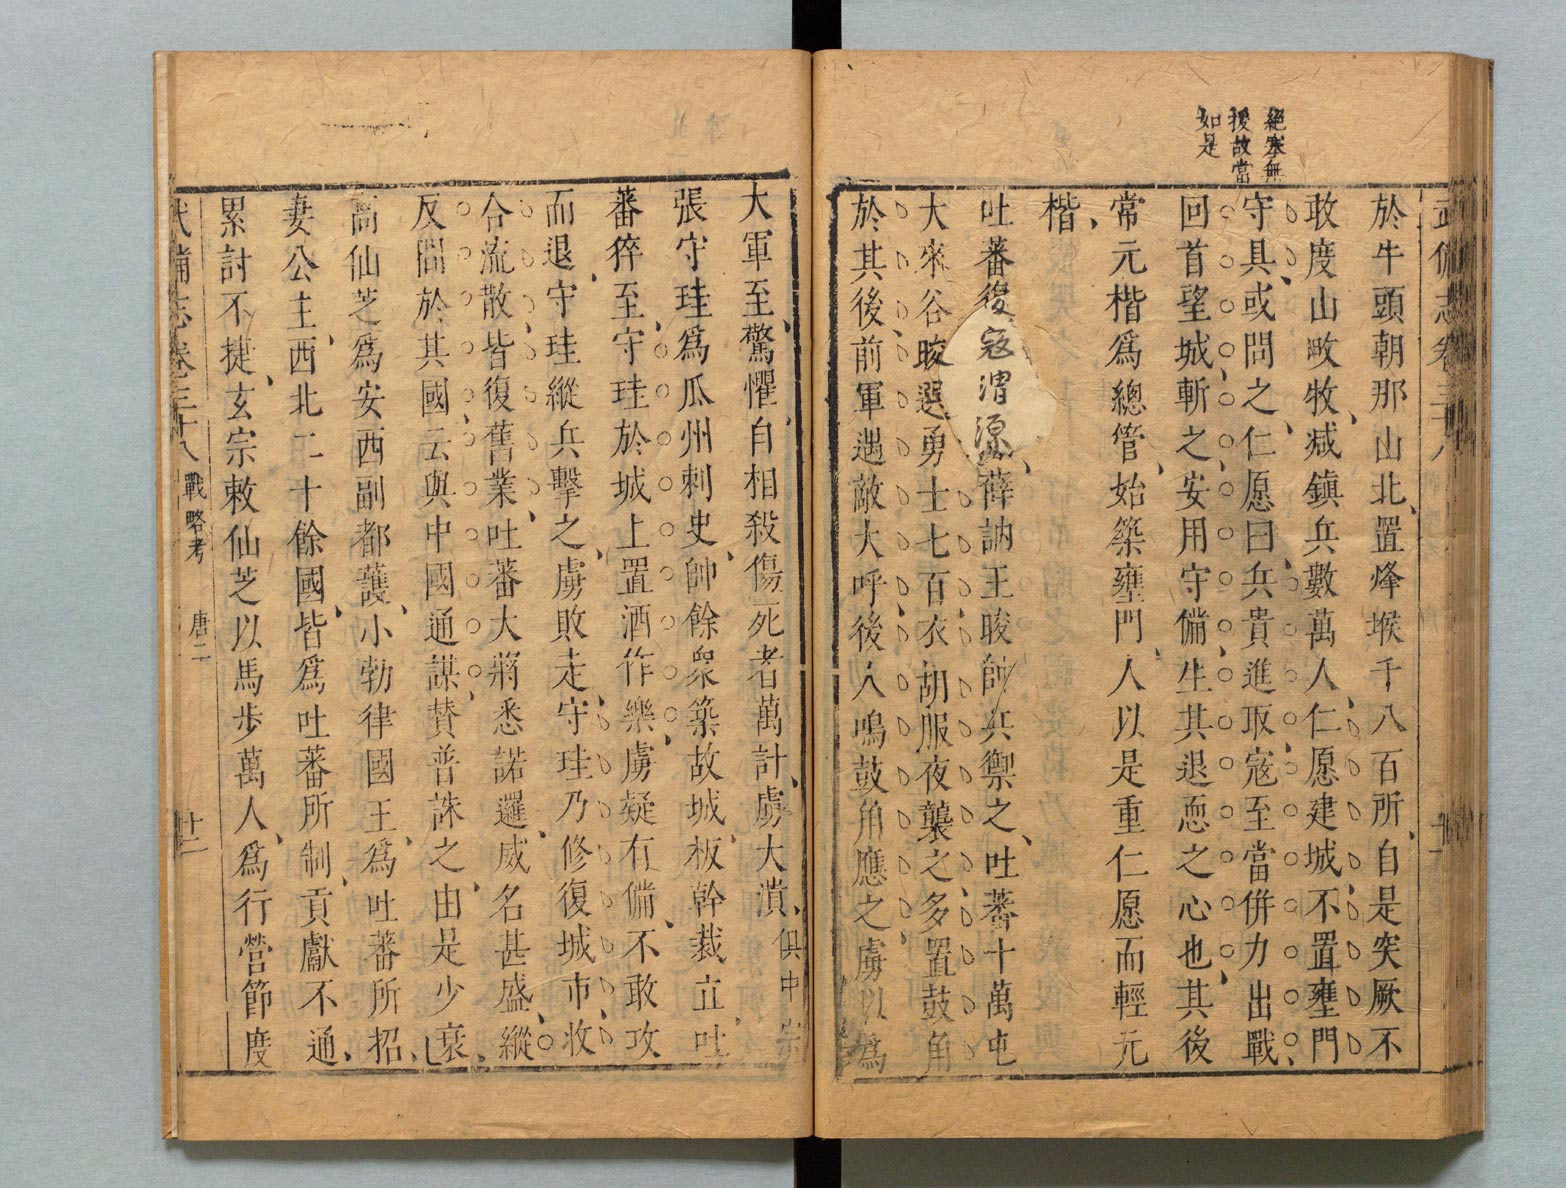 絕塞無
援故當
如是
武備志卷三十八
於牛頭朝那山北置烽堠千八百所自是突厥不
敢度山畋牧减鎮兵數萬人仁愿建城不置壅門
守具或問之仁愿曰兵貴進取寇至當併力出戰
回首望城斬之安用守備生其退恧之心也其後
常元楷爲總管始築壅門人以是重仁愿而輕元
楷
吐蕃復寇渭源薛訥王晙帥兵禦之吐蕃十萬屯
大來谷晙選勇士七百衣胡服夜襲之多置鼓角
於其後前軍遇敵大呼後人鳴鼓角應之虜以爲
大軍至驚懼自相殺傷死者萬計虜大潰俱中宗
張守珪爲瓜州刺史帥餘衆築故城板幹裁立吐
蕃猝至守珪於城上置酒作樂虜疑有備不敢攻
而退守珪縱兵擊之虜敗走守珪乃修復城市收
合流散皆復舊業吐蕃大將悉諾邏威名甚盛縱
反間於其國云與中國通謀賛普誅之由是少衰
高仙芝爲安西副都護小勃律國王爲吐蕃所招
妻公主西北二十餘國皆爲吐蕃所制貢獻不通
累討不捷玄宗敕仙芝以馬步萬人爲行營節度
武備志卷三十八 戰略考 唐二 十二